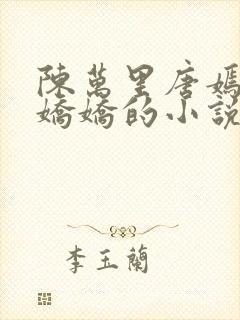 陳萬里唐嫣
嬌嬌的小說
李玉蘭